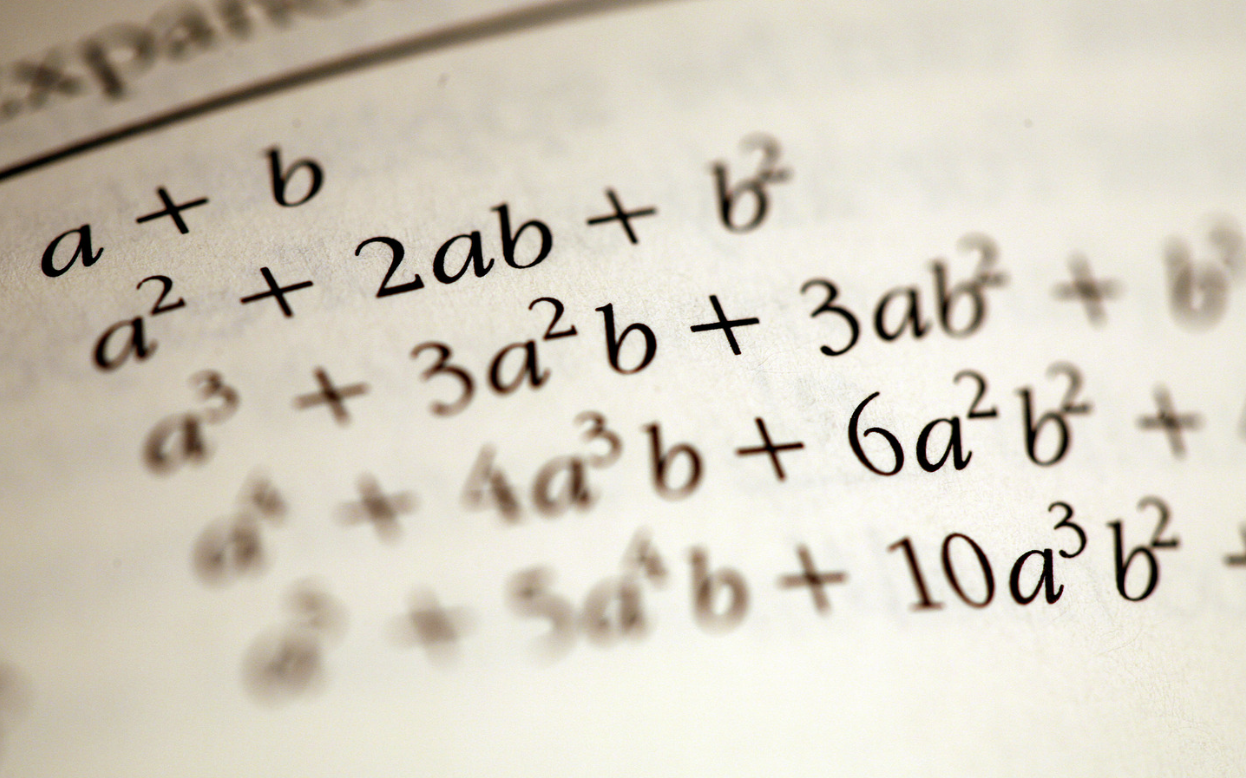 Expan
a + b
a² + 2ab + b²
a³ + 3a²b + 3ab² + b³
a⁴ + 4a³b + 6a²b² +
a⁵ + 5a⁴b + 10a³b² +